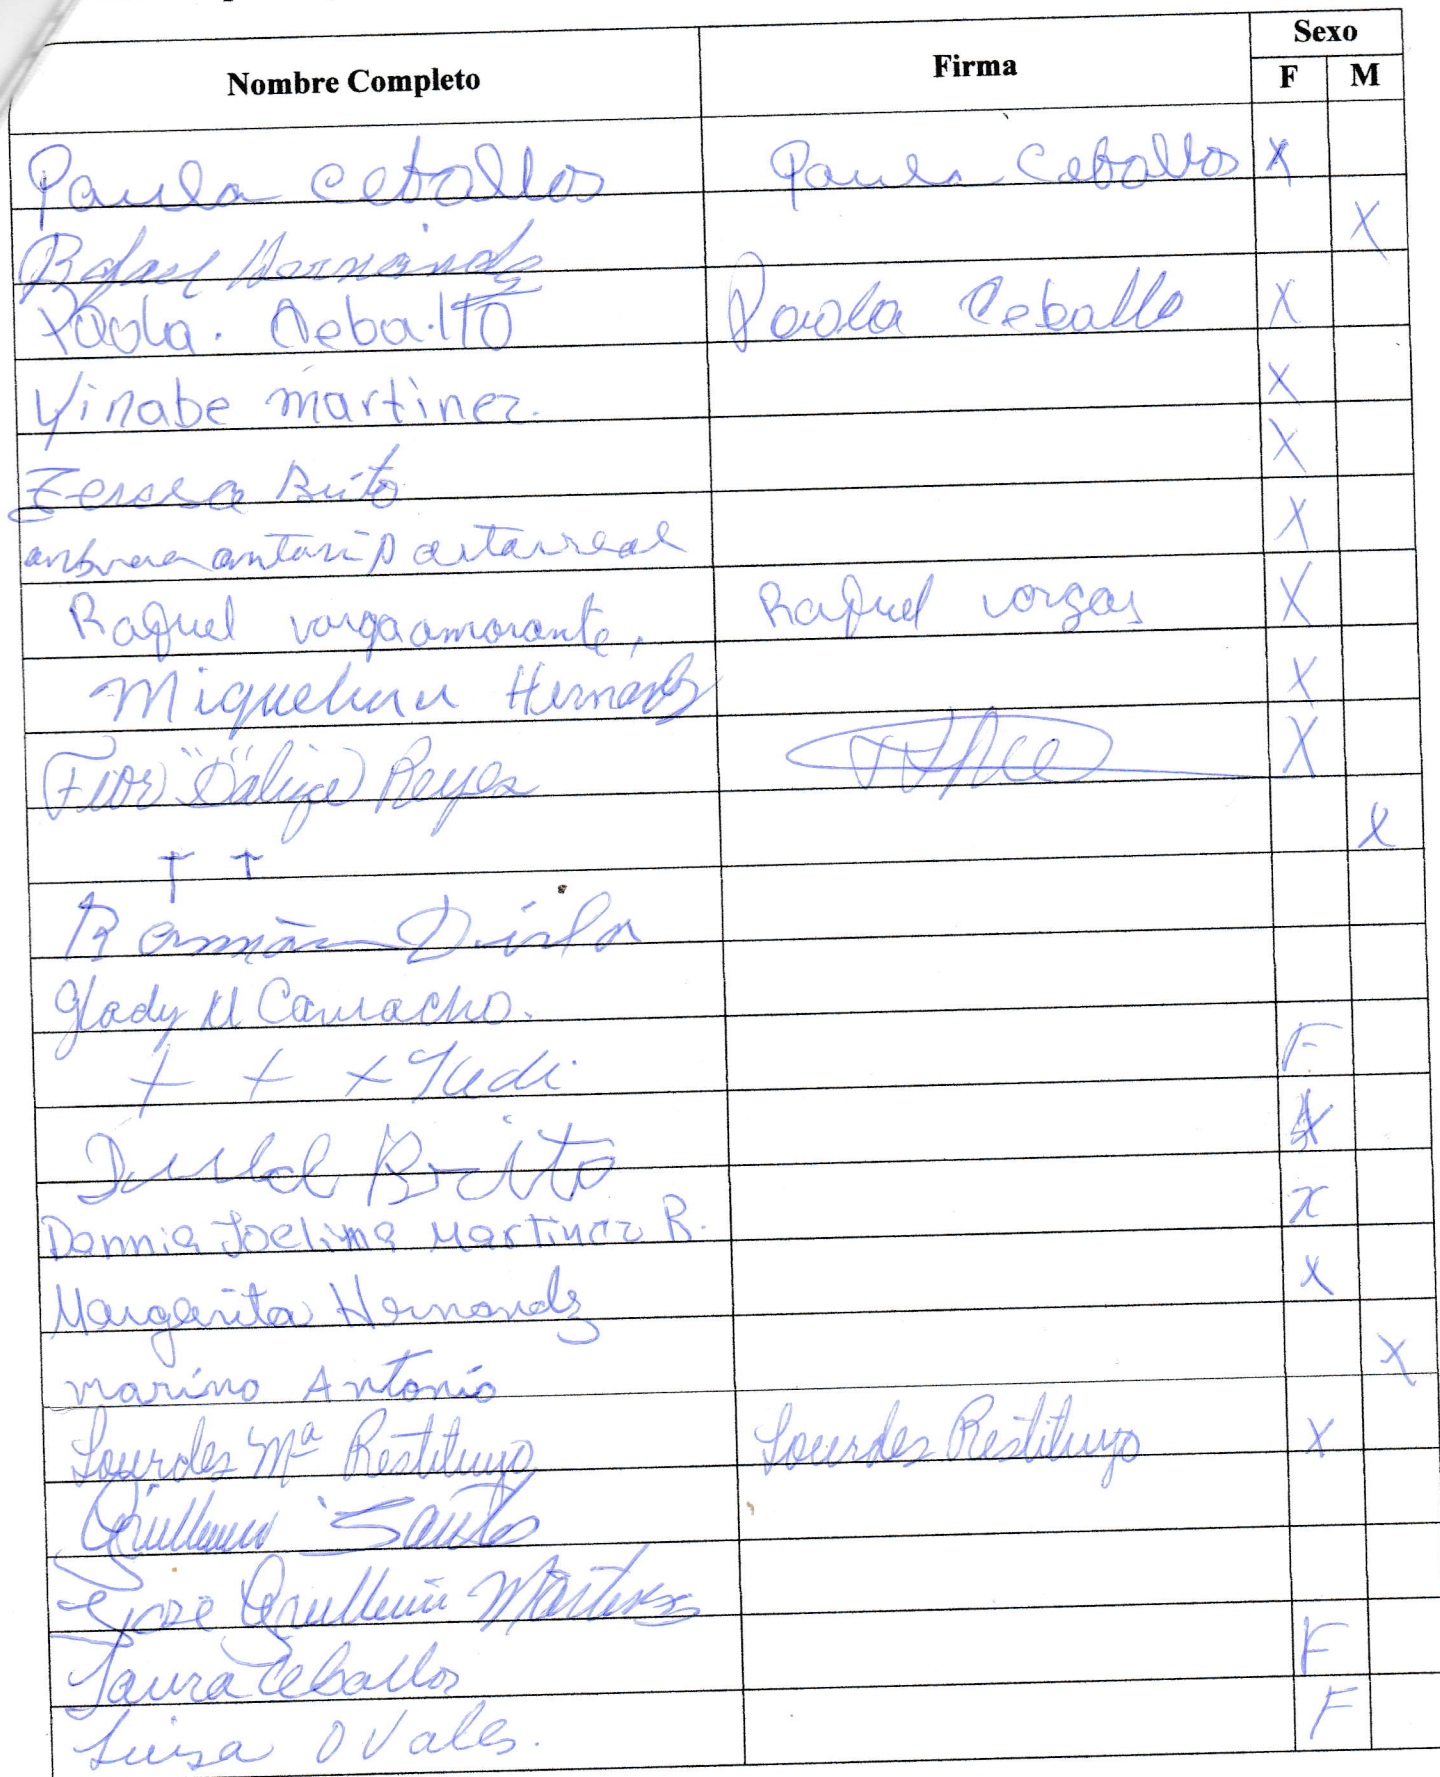 Nombre Completo Firma Sexo
F M
Paula Ceballos Paula Ceballos X
Rafael Hernández X
Paola. Ceballo Paola Ceballo X
Yinabe martinez. X
Teresa Brito X
X
Raquel varga amorante, Raquel vargas X
Miquelina Hernandz X
Fior "Daliza" Reyes X
X
† †
Ramón Dirla
Glady M Camacho.
+ + x Yudi F.
Brito X
Dannia Joelima Martinez R. x
Margarita Hernandz X
marino Antonio X
Lourdes Mª Restituyo Lourdes Restituyo X
Guillermo Santo
Jose Guillermo Martinez
Laura Ceballos F
Luisa Ovales. F